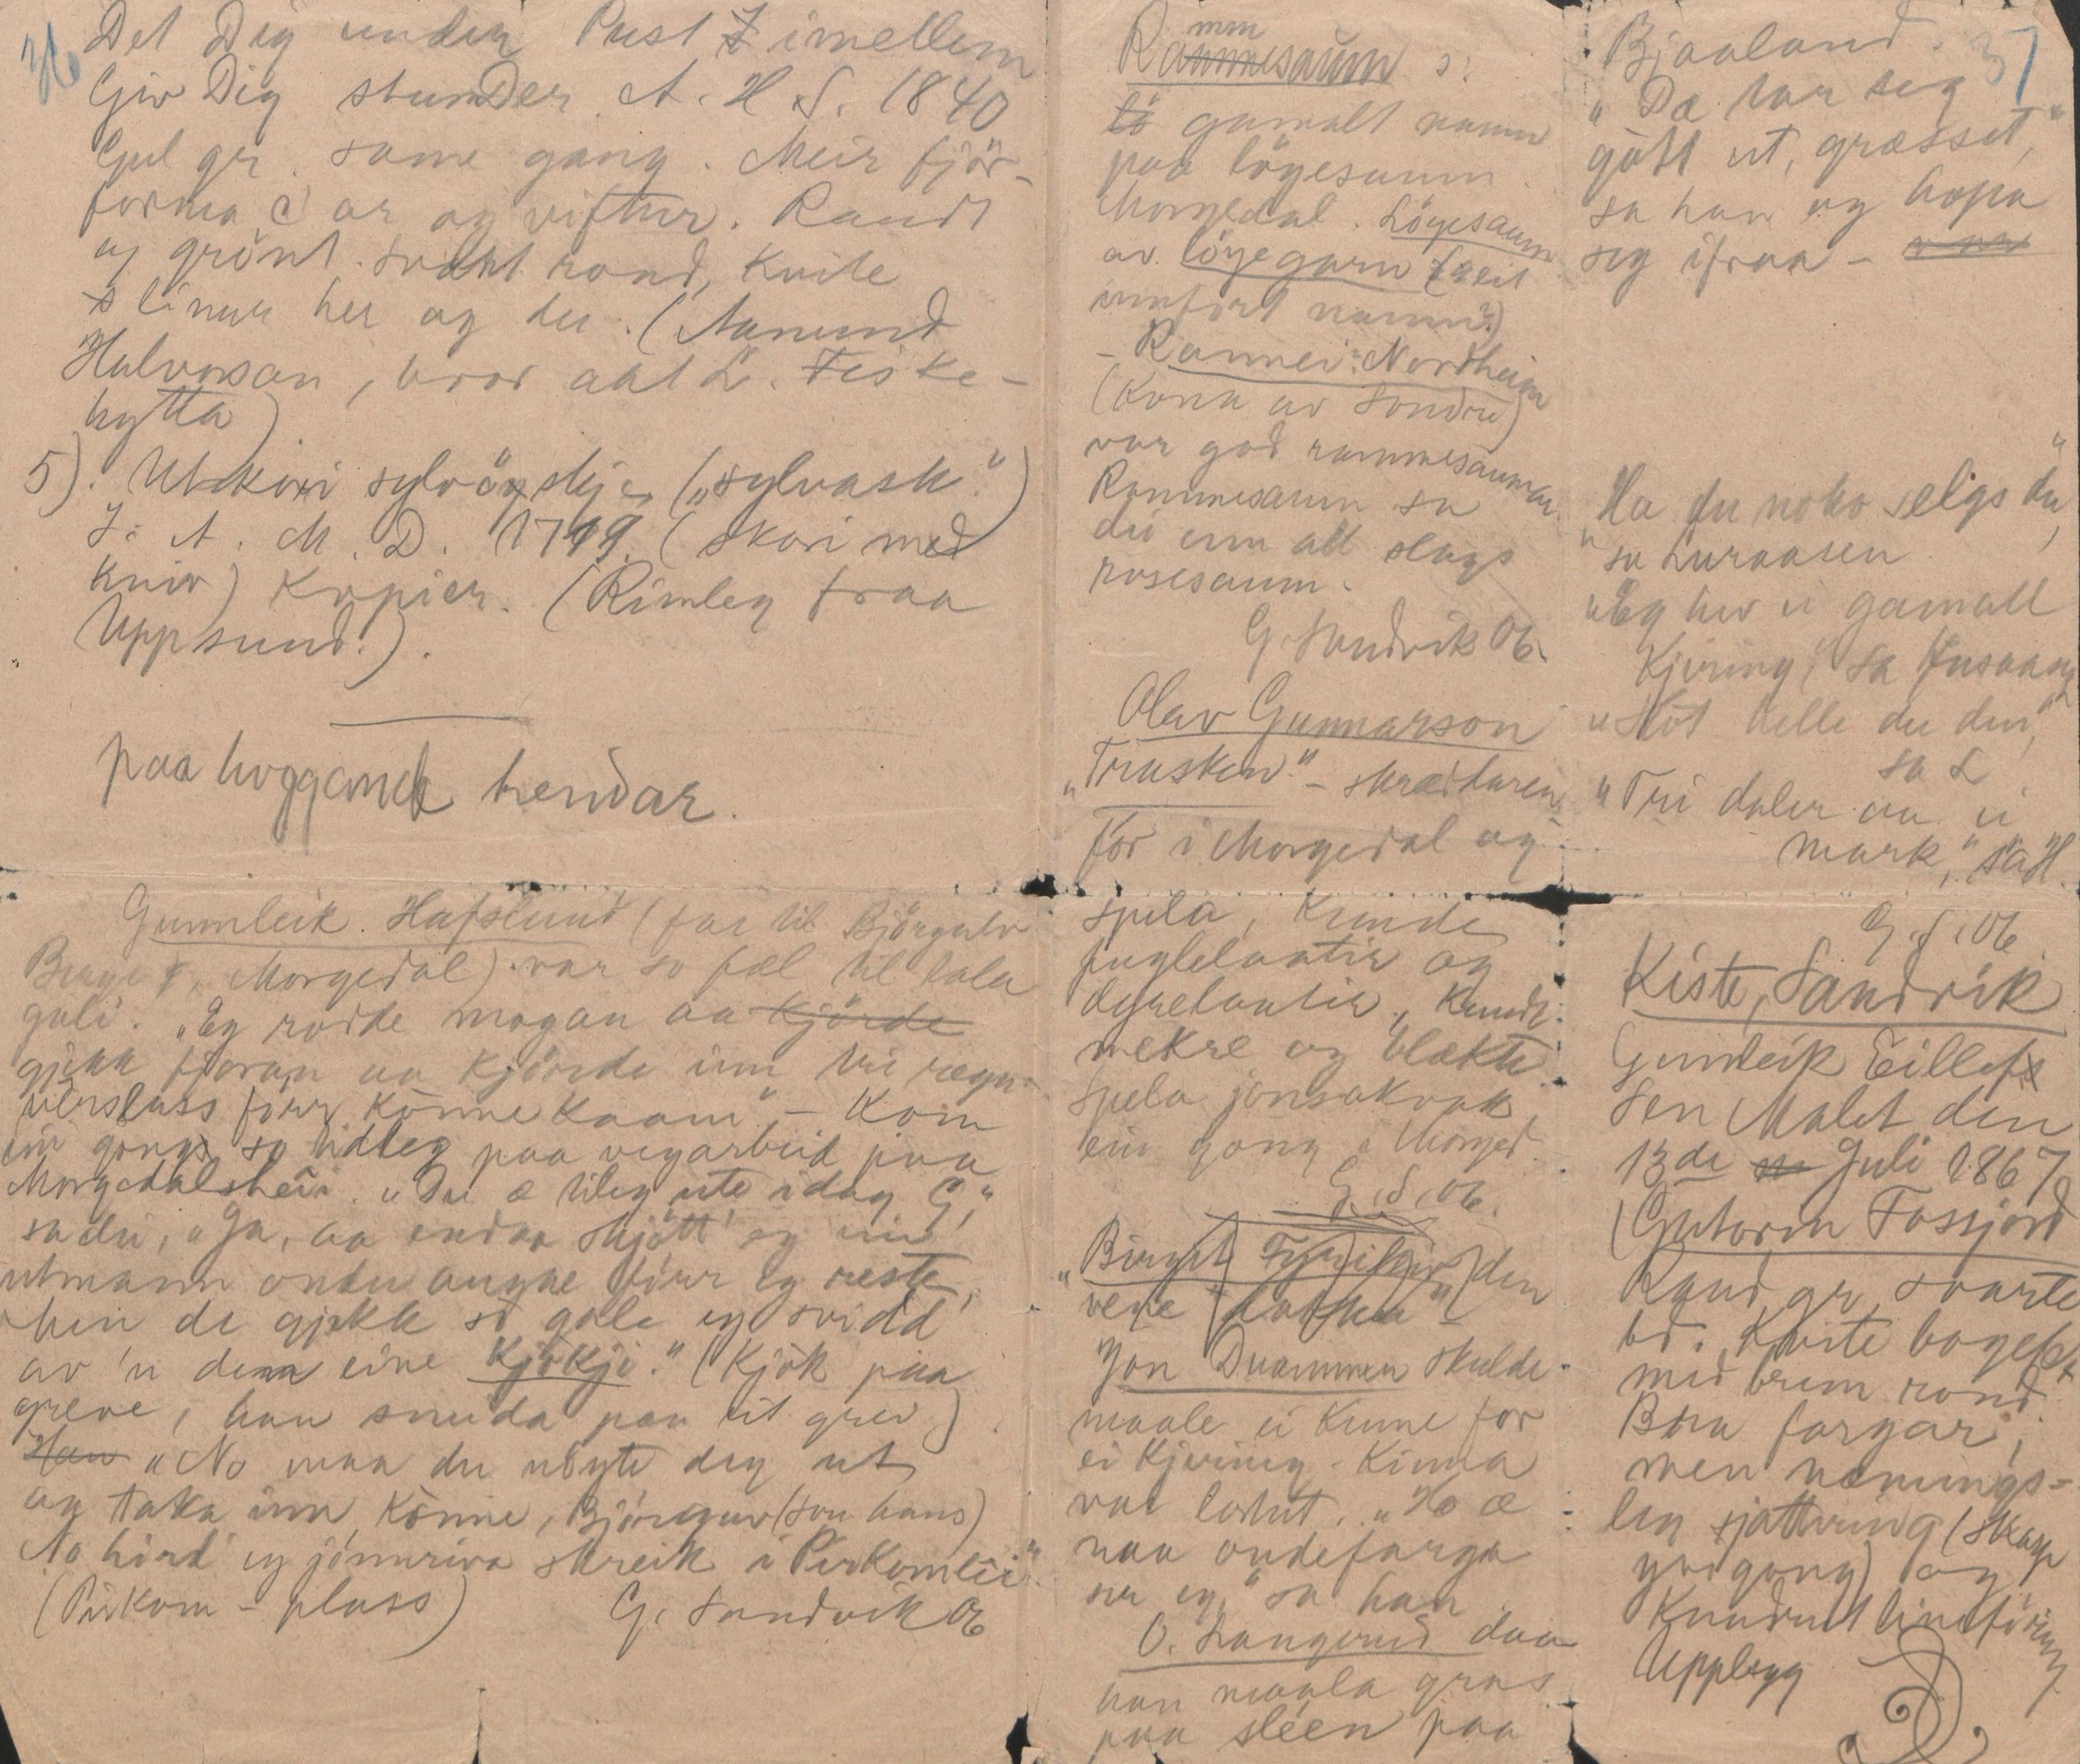 36
Det Dig under Pust imellem
Giv Dig stunder A. H S. 1840
Gul gr. same gang. Meir fjör-
forma C ar og viftur. Raudt
og grönt. svart rond, kvite
linur her og der. (Aanund
Halvorson, bror aat L. Fiske-
hytta)
5). Utskori sylvöyskje („sylvask")
I. A. M. D. 1799. (skori med
kniv) Kopier. (Rimleg fraa
Uppsund.).
paa hoggande hendar.
Gunnleik Hafslund (far til Björgulv
Berge, Morgedal) var so fæl til tala
gali. „Eg rodde mogan aa kjörde
gjekk fjoran aa kjörde inn tri regn-
verslass förr könne kaam" - Kom
ein gong so tidleg paa vegarbeid paa
Morgedalsheii. „Du æ tileg ute idag G,"
sa dei, „Ja, aa endaa skjött eg ein
utmann onde augne förr eg reste,
men de gjekk so gale eg svidd
av 'n denn eine kjökji." (Kjök paa
greve, han smida paa eit grev).
Han „No maa du ubyte deg ut
og taka inn könne, Björguv (son hans)
No hörd eg jönnriva skreik i Pirkomlii".
(Pirkom - plass) G. Sandvik 06
mm
Rammesaum s.
gamalt namn
paa löyesaum.
Morgedal. Löyesaum
av löyegarn (eit
innfört namn?)
- Rannei Nordheim
(Kona av Sondre)
var god rammesaumar.
Rammesaum sa
dei um all slags
rosesaum.
G. Sandvik 06.
Olav Gunnarson
„Trusken" - skræddaren.
For i Morgedal og
spela, kunde
fuglelaatir og
dyrelaatir, kunde
mekre og blækte.
Spela jonsokvak
ein gong i Morged.
G. S. 06.
„Birgit (den
vene
Jon Duammen skulde
maale ei kinne for
ei kjering. Kinna
var loshut. „Ho æ
naa ondefarga
ser eg," sa han.
O. Langerud daa
han maala gras
paa sleen paa
37
Bjaaland.
„Dæ tar seg
gött ut, græsset,"
sa han og hopa
seg ifraa -
„Ha du noko selgs du"
sa Luraasen
„Eg hev ei gamall
Kjering," sa Husaas
„Höt helle du den,"
sa L
„Tri daler aa ei
mark," sa H.
G. S. 06
Kiste, Sandvik
Gunleik Eillefs
Sen Malet den
13de Juli 1867
(Gutorm Fossjord
Raud gr, svarte
bd. Kvite bogefelt
med brun rond.
Bra fargar,
men nemings-
leg sjattering (skarp
yvigong) og
Knudrut lineföring
Upplegg